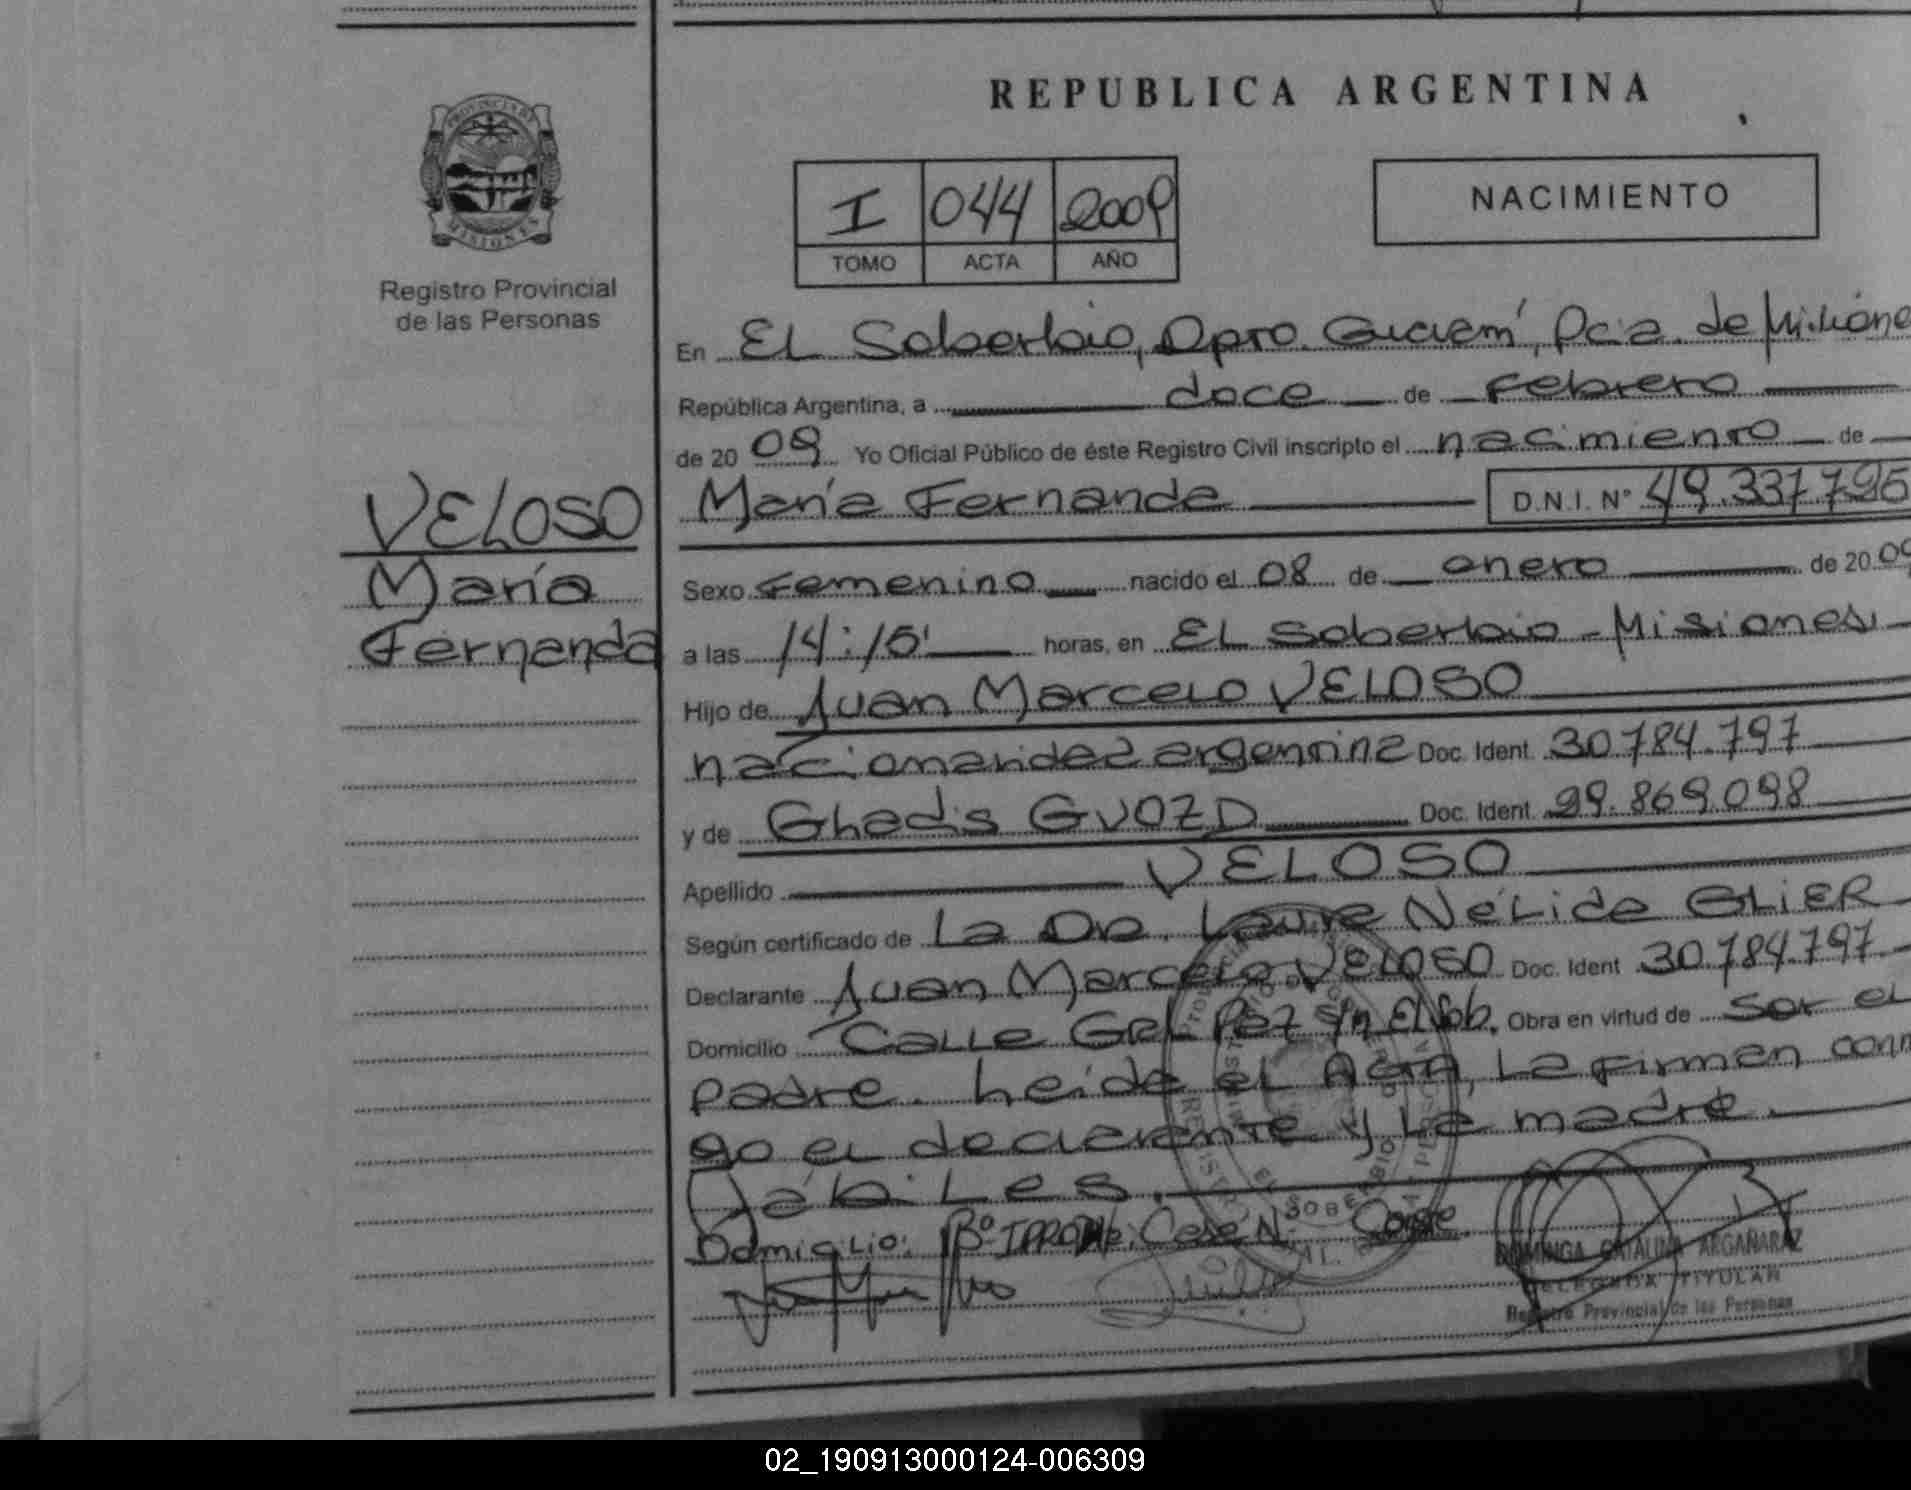 REPUBLICA ARGENTINA
PROVINCIA DE
MISIONES
Registro Provincial
de las Personas
I 044 2009
TOMO ACTA AÑO
NACIMIENTO
En El Soberbio, Dpto. Guaraní, Pcia. de Misione
República Argentina, a doce de Febrero
de 2009 Yo Oficial Público de éste Registro Civil inscripto el nacimiento de
María Fernanda D.N.I. Nº 49.337.795
VELOSO
María
Fernanda
Sexo Femenino nacido el 08 de enero de 2009
a las 14:15' horas, en El Soberbio - Misiones
Hijo de Juan Marcelo VELOSO
nacionalidad argentina Doc. Ident. 30.784.797
y de Gladis GVOZD Doc. Ident. 99.869.098
Apellido VELOSO
Según certificado de La Dra. Laura Nélida GLIER
Declarante Juan Marcelo VELOSO Doc. Ident 30.784.797
Domicilio Calle Gral Paz s/n El Sob. Obra en virtud de ser el
padre. Leida el Acta, La Firman conm
go el declarante y La madre.
Domicilio: Bº IPRODHA; Casa N
DOMINGA CATALINA ARGAÑARAZ
DELEGADA TITULAR
Registro Provincial de las Personas
02_190913000124-006309